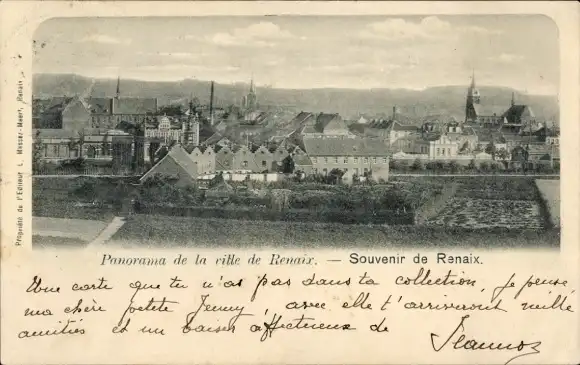 Propriété de l'Editeur L. Messer-Meert, Renaix
Panorama de la ville de Renaix. — Souvenir de Renaix.
Une carte que tu n'as pas dans ta collection. Je pense,
ma chère petite Jenny, avec elle t'arriveront mille
amitiés et un baiser affectueux de